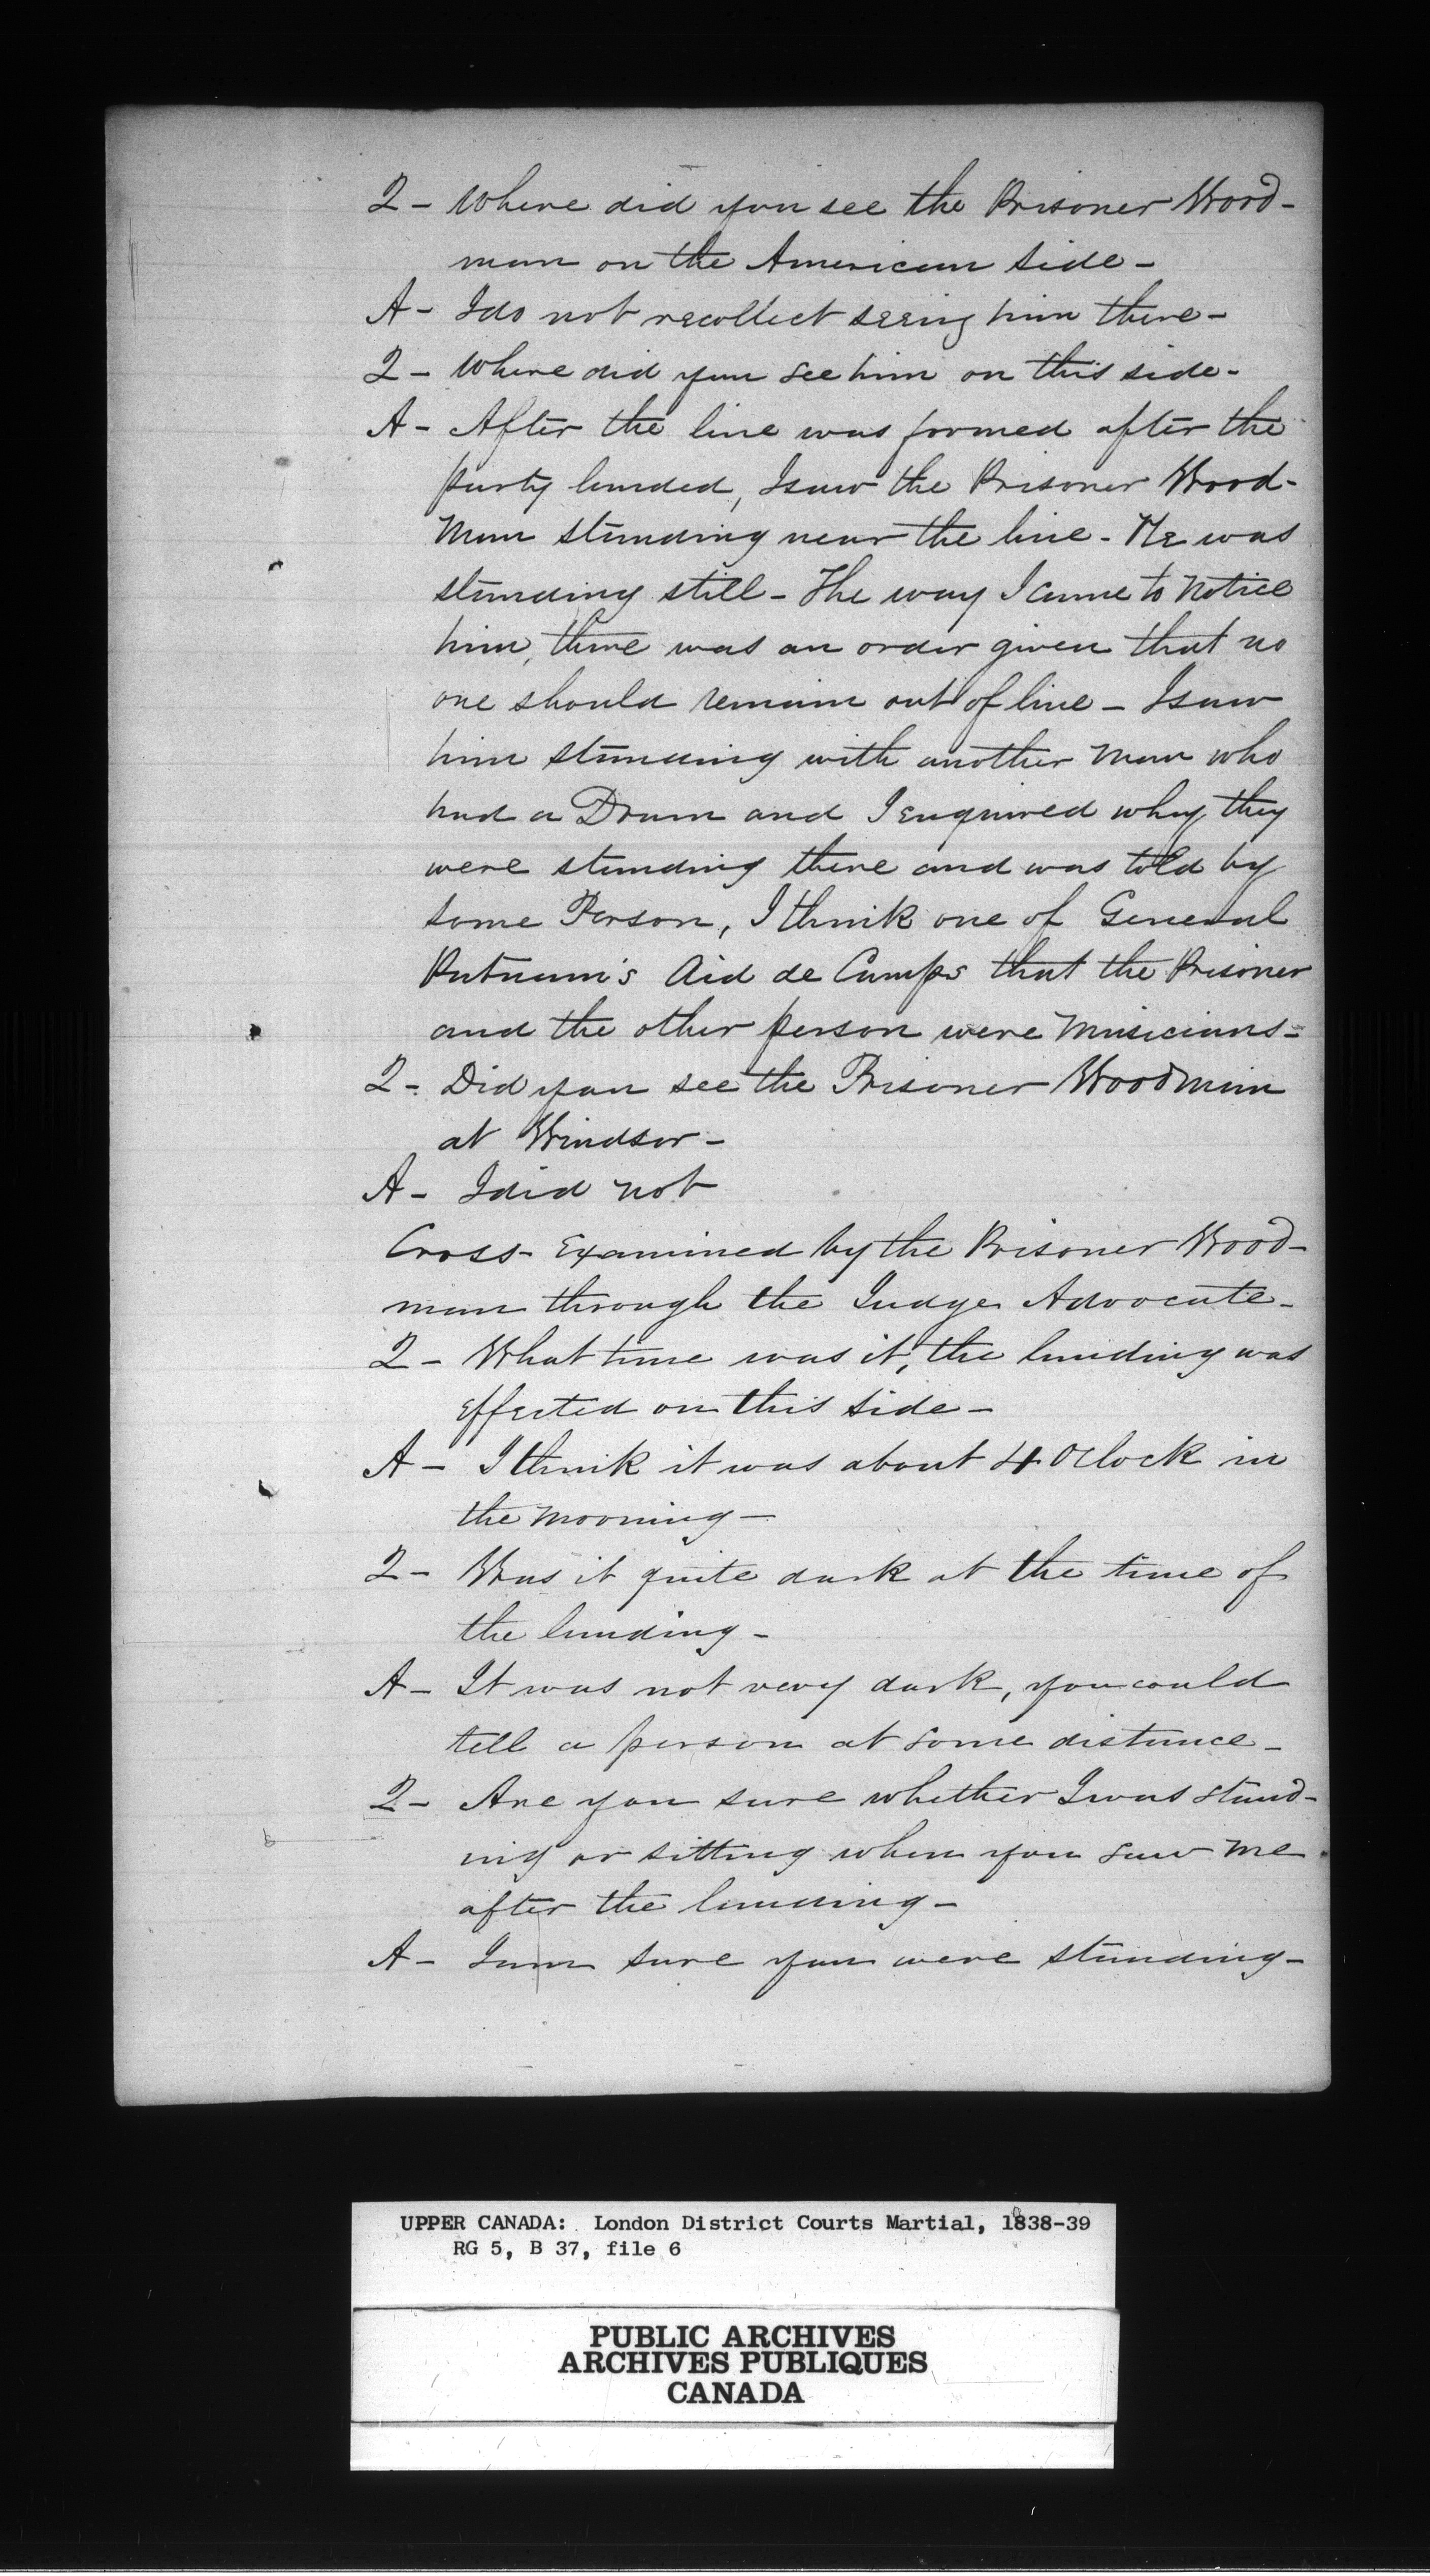 Q - Where did you see the Prisoner Wood-
man on the American side -
A - I do not recollect seeing him there -
Q - Where did you see him on this side -
A - After the line was formed after the
party landed, I saw the Prisoner Wood-
man standing near the line - He was
standing still - The way I came to notice
him, there was an order given that no
one should remain out of line - I saw
him standing with another man who
had a Drum and I enquired why they
were standing there and was told by
some Person, I think one of General
Putnam's Aid de Camps that the Prisoner
and the other person were Musicians -
Q - Did you see the Prisoner Woodman
at Windsor -
A - I did not
Cross - Examined by the Prisoner Wood-
man through the Judge Advocate -
Q - What time was it, the landing was
effected on this side -
A - I think it was about 4 O'Clock in
the morning -
Q - Was it quite dark at the time of
the landing -
A - It was not very dark, you could
tell a person at some distance -
Q - Are you sure whether I was stand-
ing or sitting when you saw me
after the landing -
A - I am sure you were standing -
UPPER CANADA: London District Courts Martial, 1838-39
RG 5, B 37, file 6
PUBLIC ARCHIVES
ARCHIVES PUBLIQUES
CANADA